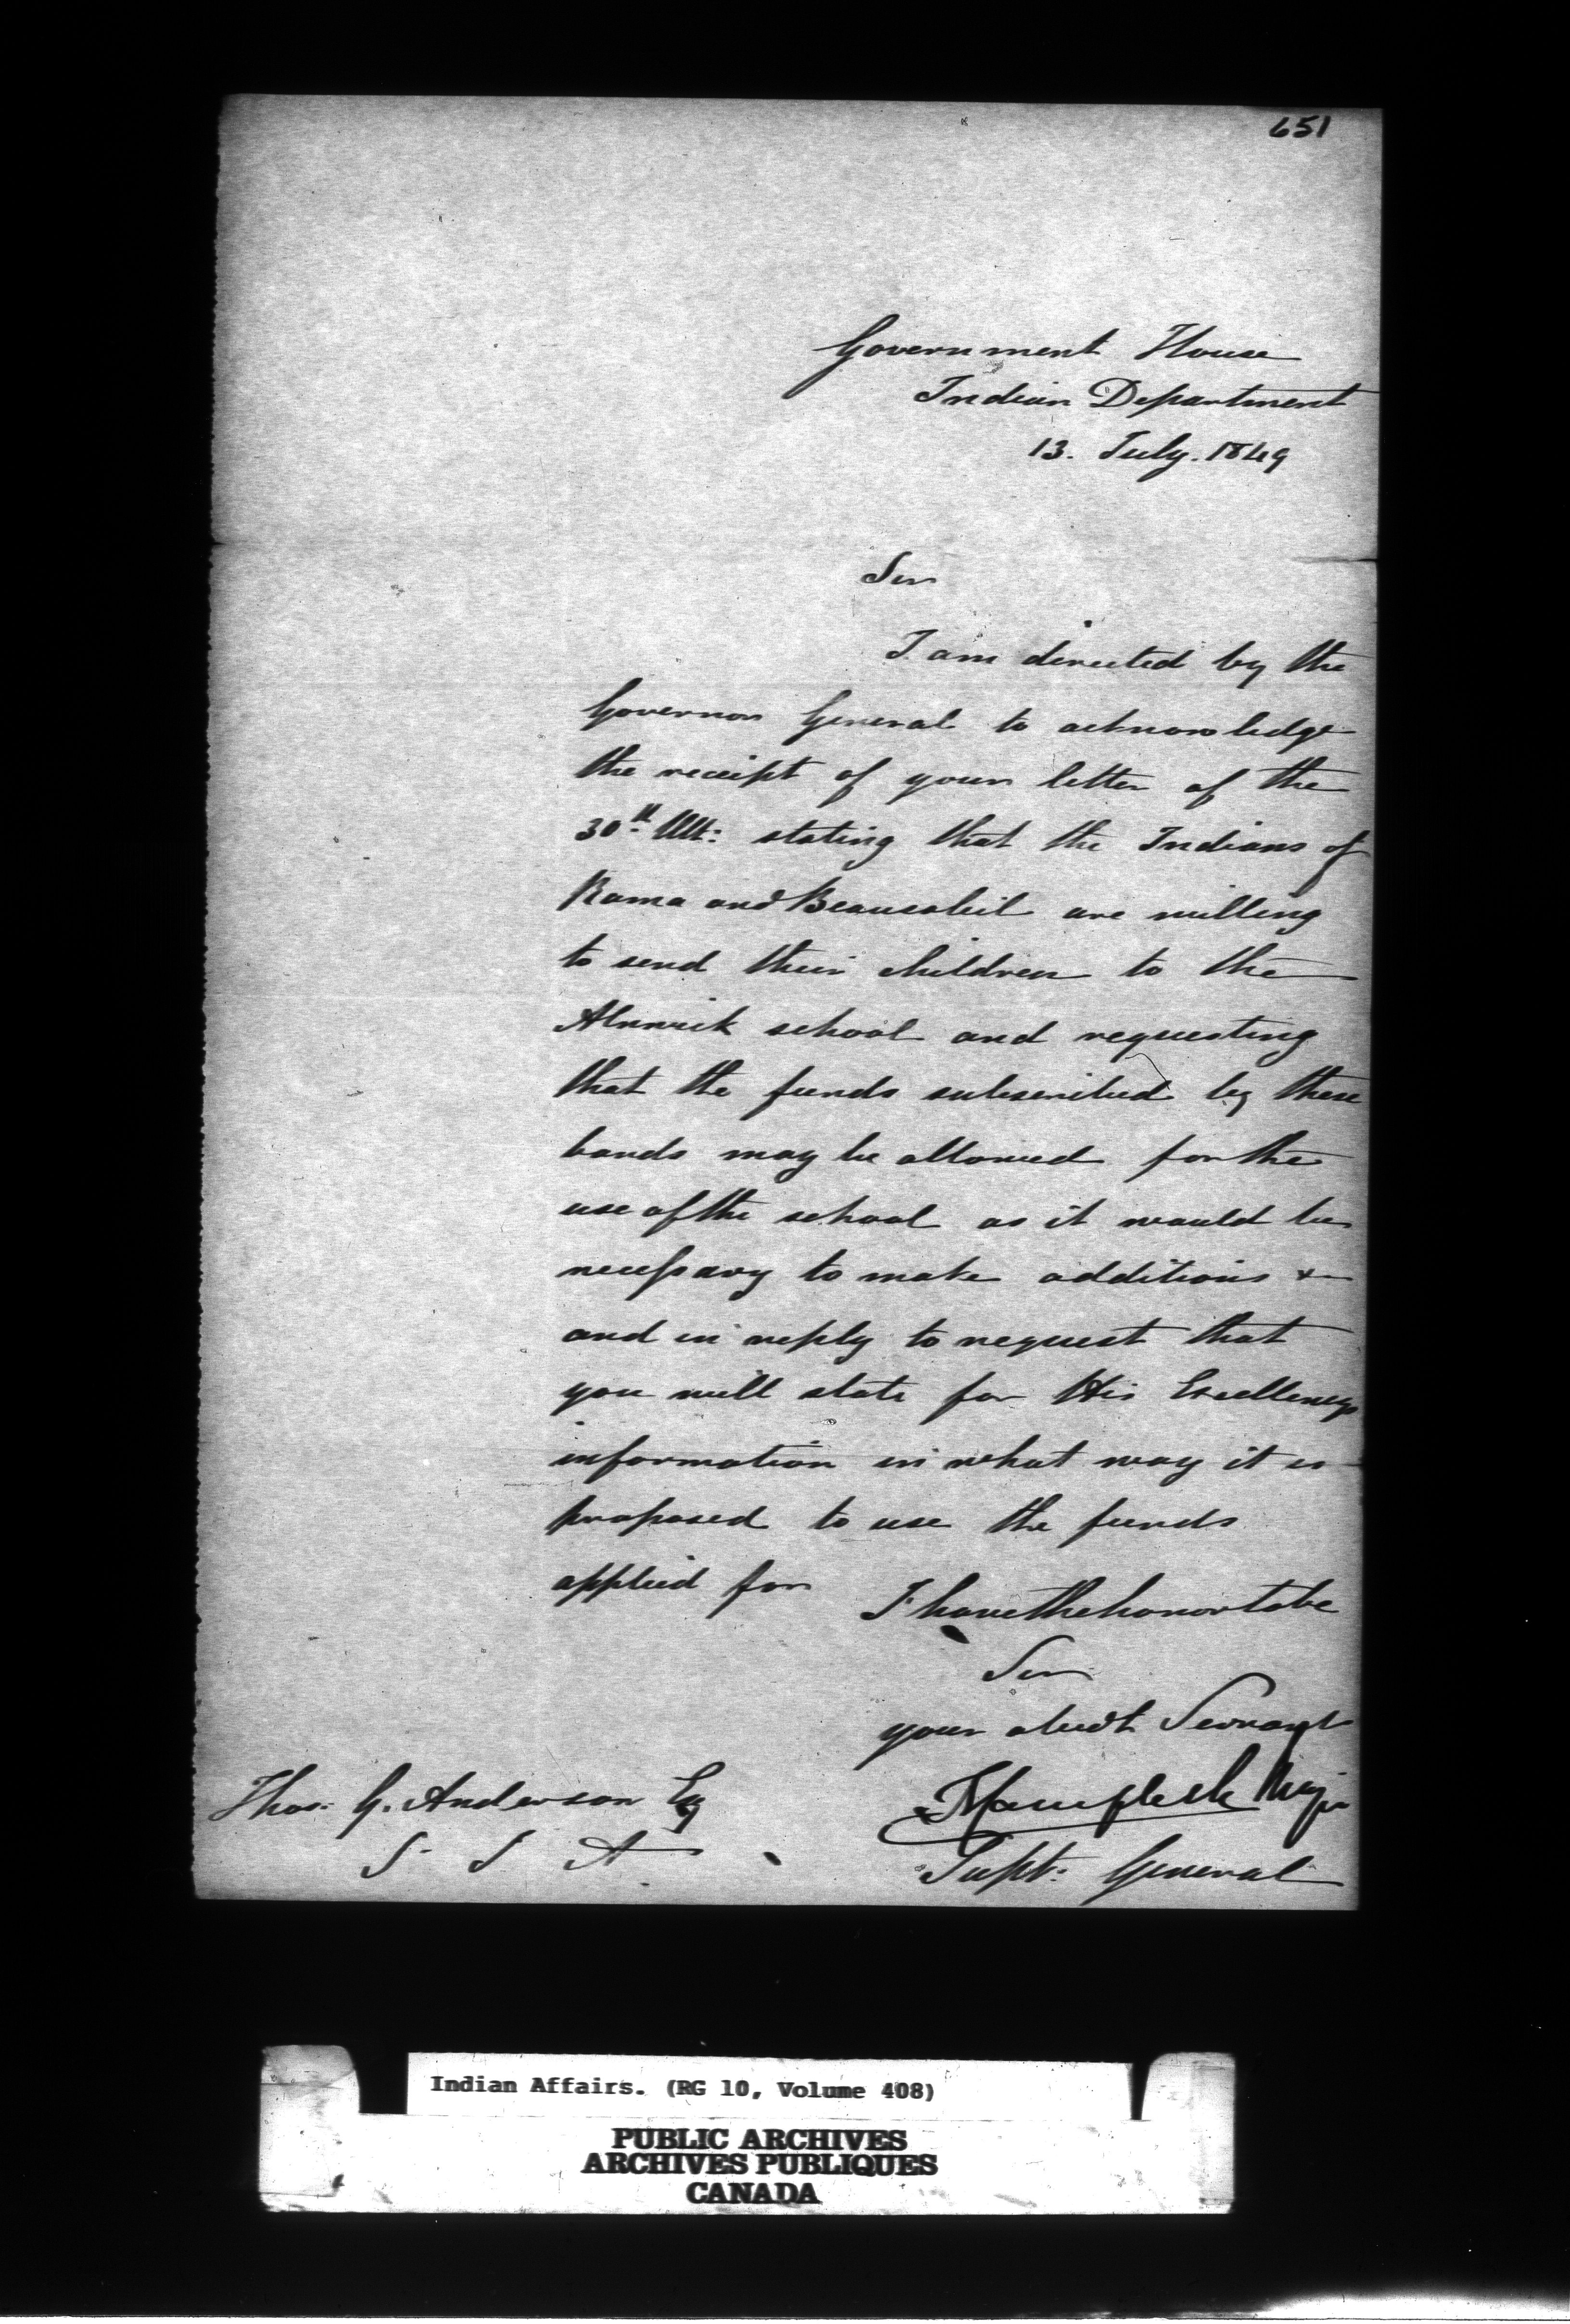 651
Government House
Indian Department
13. July. 1849
Sir
I am directed by the
Governor General to acknowledge
the receipt of your letter of the
30th Ult: stating that the Indians of
Rama and Beausoleil are willing
to send their children to the
Alnwick school and requesting
that the funds subscribed by these
bands may be allowed for the
use of the school as it would be
necessary to make additions &
and in reply to request that
you will state for His Excellencys
information in what way it is
proposed to use the funds
applied for
I have the honor to be
Sir
your obedt Servant
Major
Supt: General
Thos: G. Anderson Esq
S I A
Indian Affairs. (RG 10, Volume 408)
PUBLIC ARCHIVES
ARCHIVES PUBLIQUES
CANADA